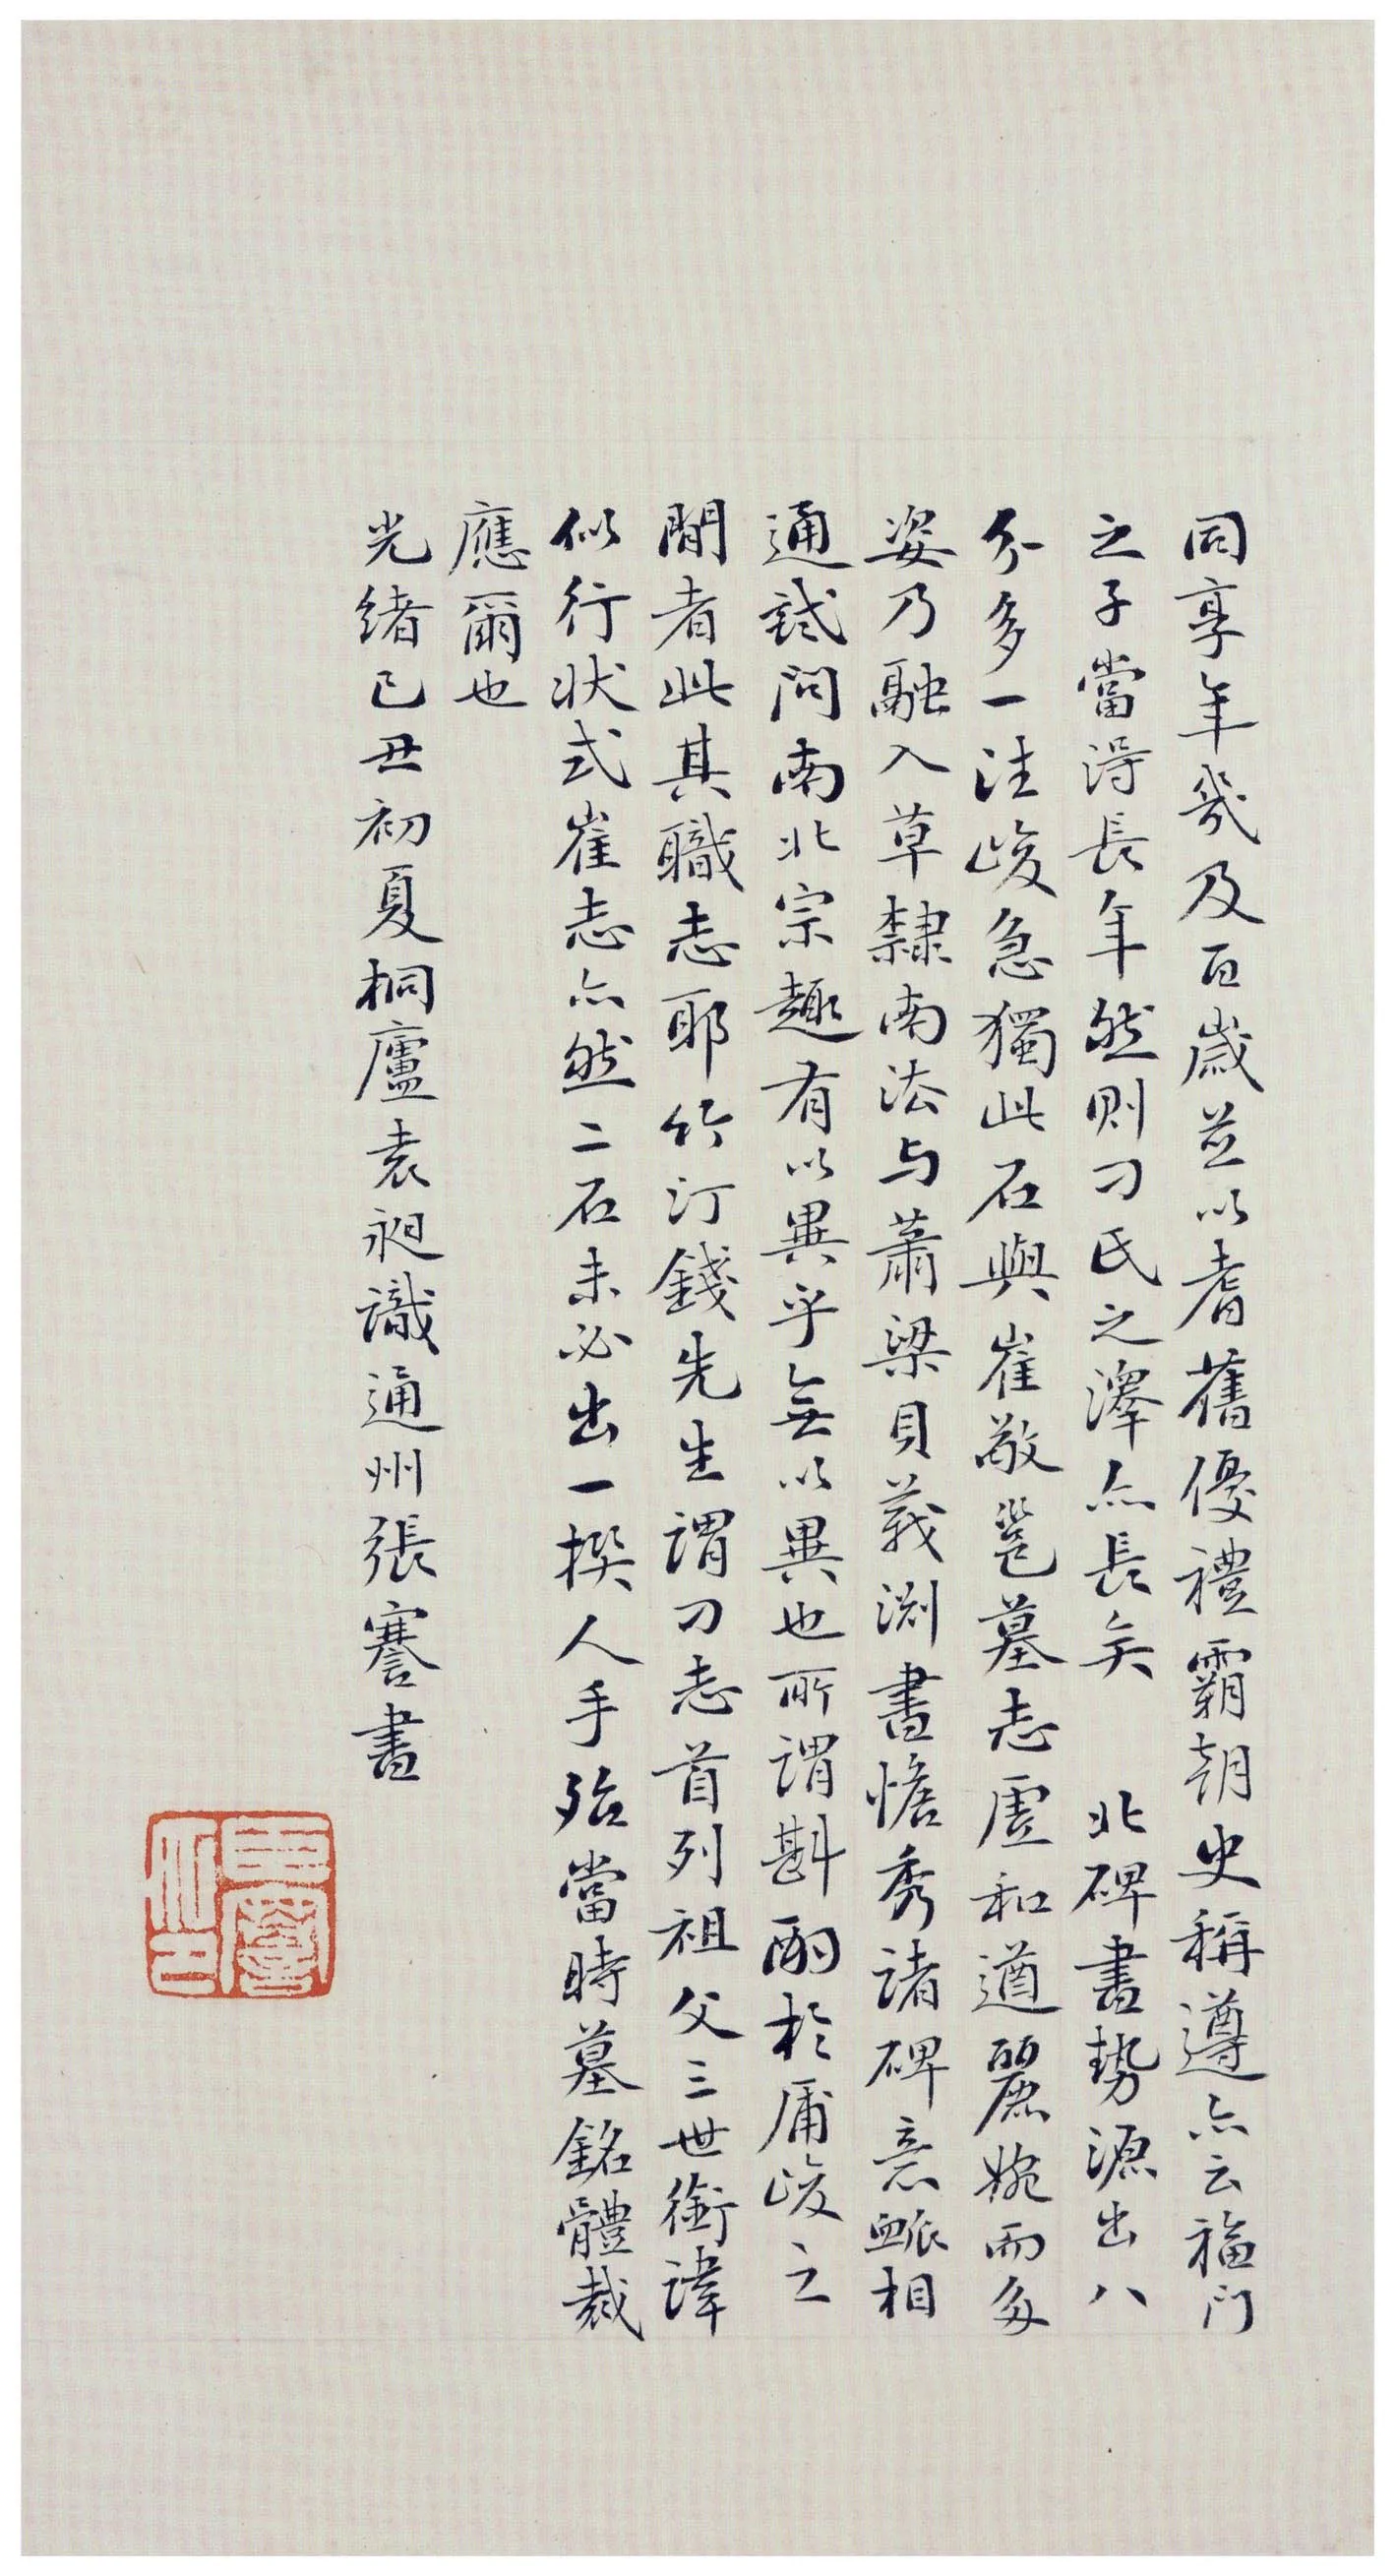 同享年幾及百歲並以耆舊優禮霸朝史稱遵亦云福門
之子當得長年然則刁氏之澤亦長矣　北碑書勢源出八
分多一洼峻急獨此石與崔敬邕墓志虛和遒麗婉而多
姿乃融入草隸南法与蕭梁貝義淵書憺秀諸碑意脈相
通試問南北宗趣有以異乎無以異也所謂斟酌於庸峻之
間者此其職志耶竹汀錢先生謂刁志首列祖父三世銜諱
似行狀式崔志亦然二石未必出一撰人手殆當時墓銘體裁
應爾也
光緒己丑初夏桐廬袁昶識通州張謇書